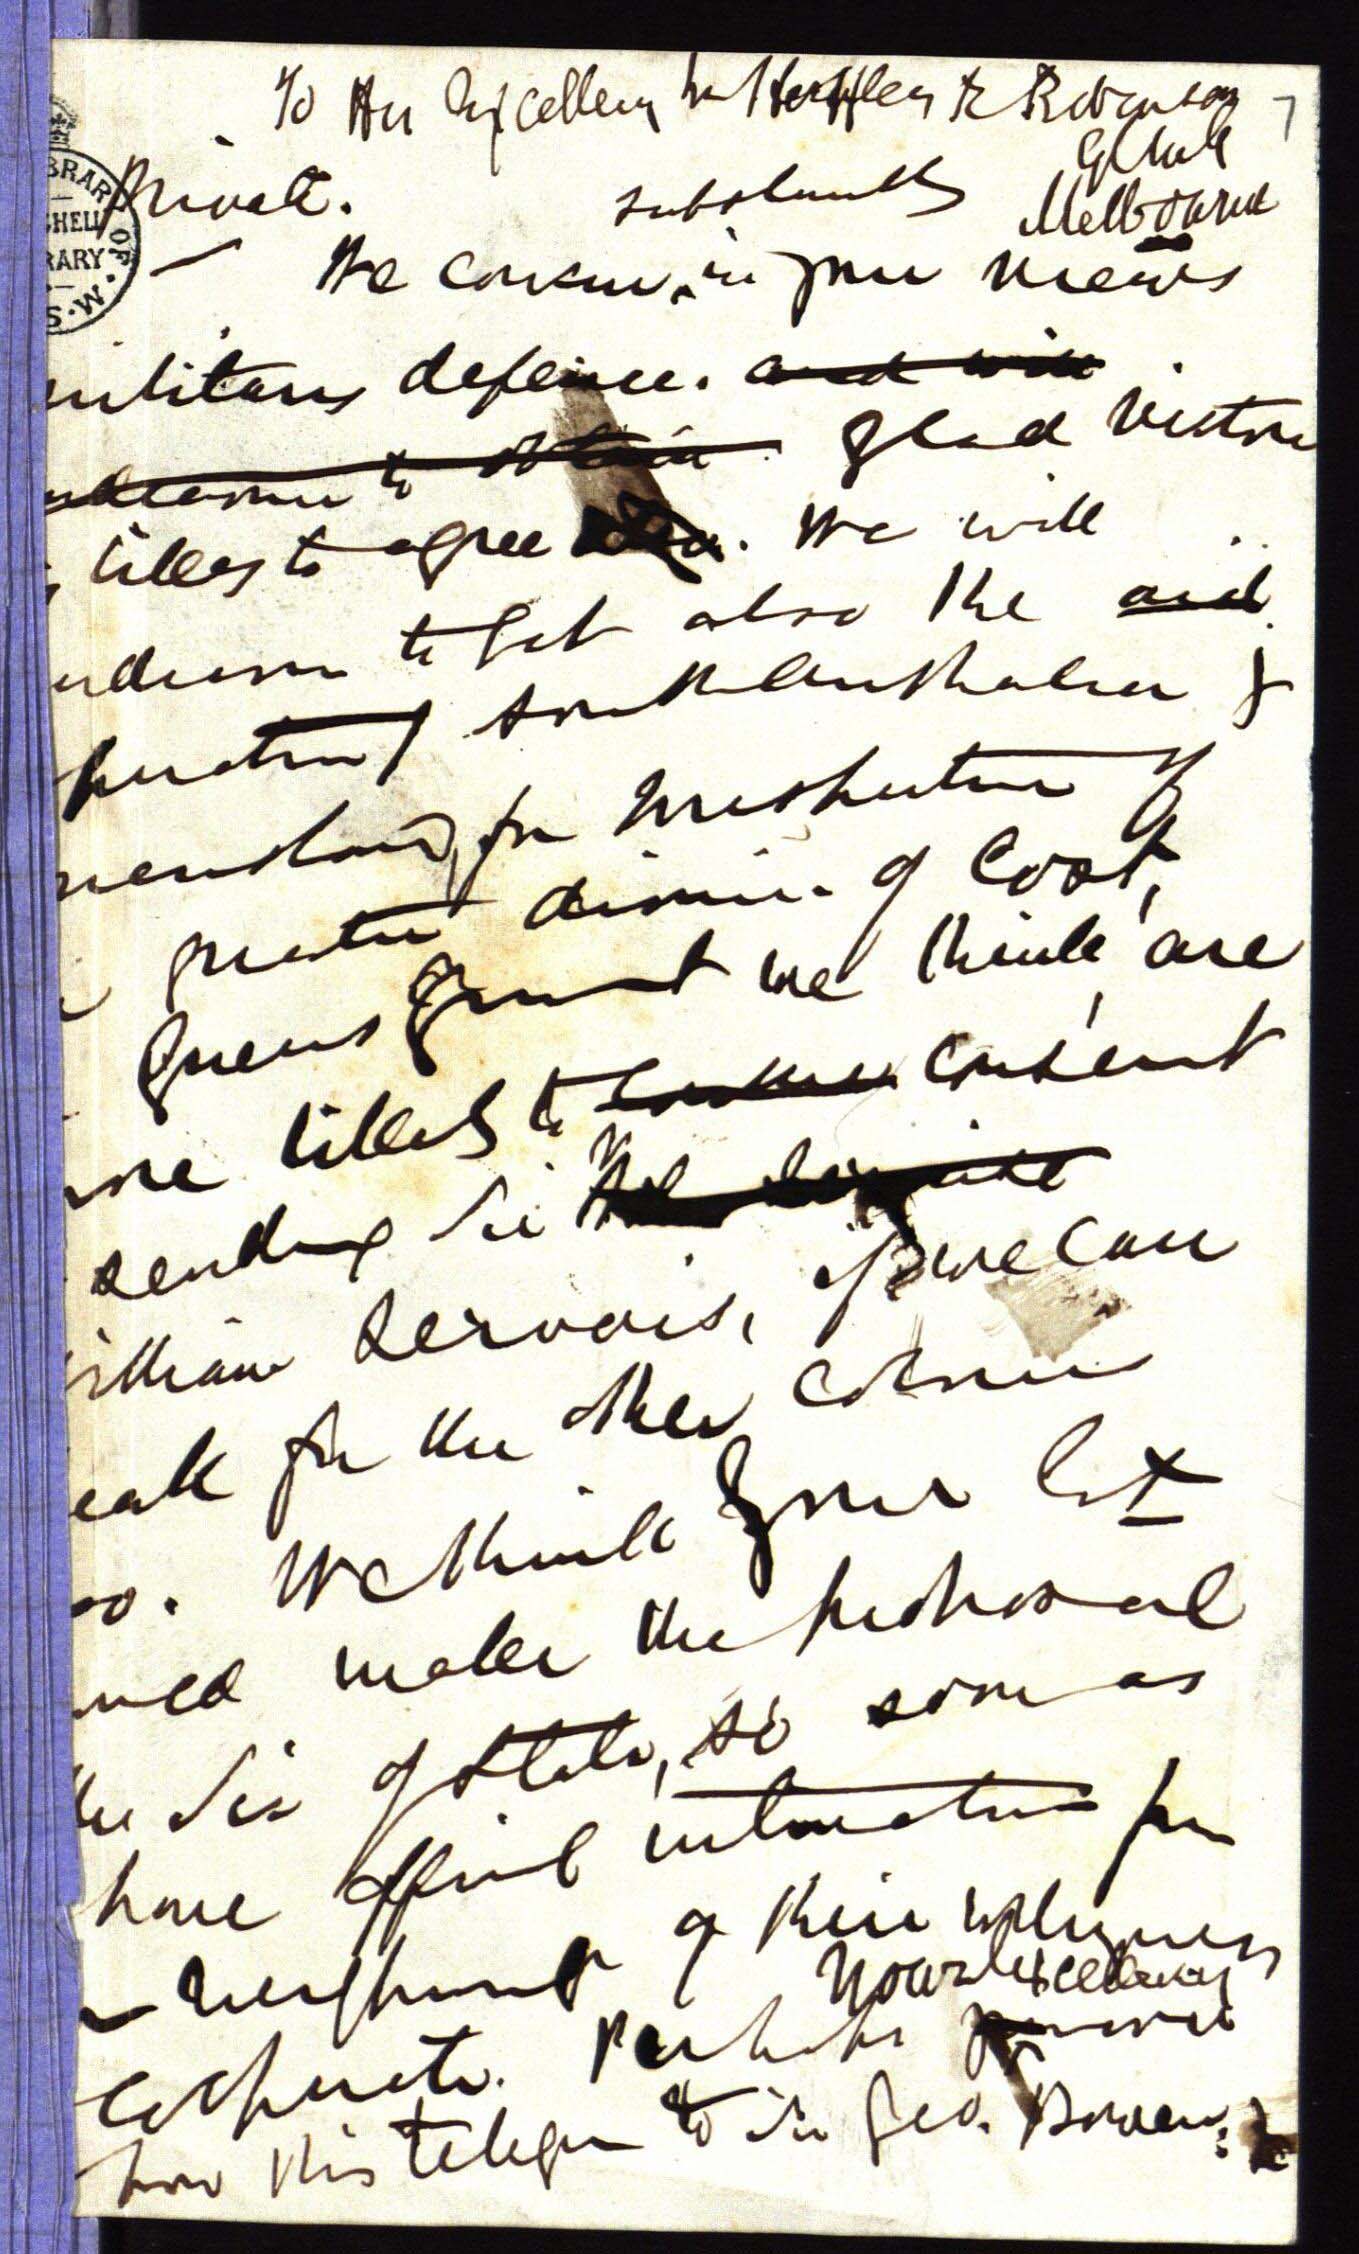 To His Excellency Sir Hercules R Robinson
G.C.M.G.
Melbourne
Private.
substantially
We concur, in your views
military defence. and will
endeavour to obtain. glad Victoria
is likely to agree. We will
endeavour to get also the aid
operation of South Australia &
Queensland, for prosecution of
greater dimin. of cost,
Queens Gvment we think, are
more likely to consent
sending Sir
William Jervois, if we can
speak for the other Colonies
so. We think your Lt
make the proposal
the Sec of State, so soon as
have official intimation from
Govment of their willingness
Your Excellency
cooperate. Perhaps
show this telegm to Sir Geo. Bowen.
LIBRARY OF
MITCHELL
LIBRARY
N.S.W.
7